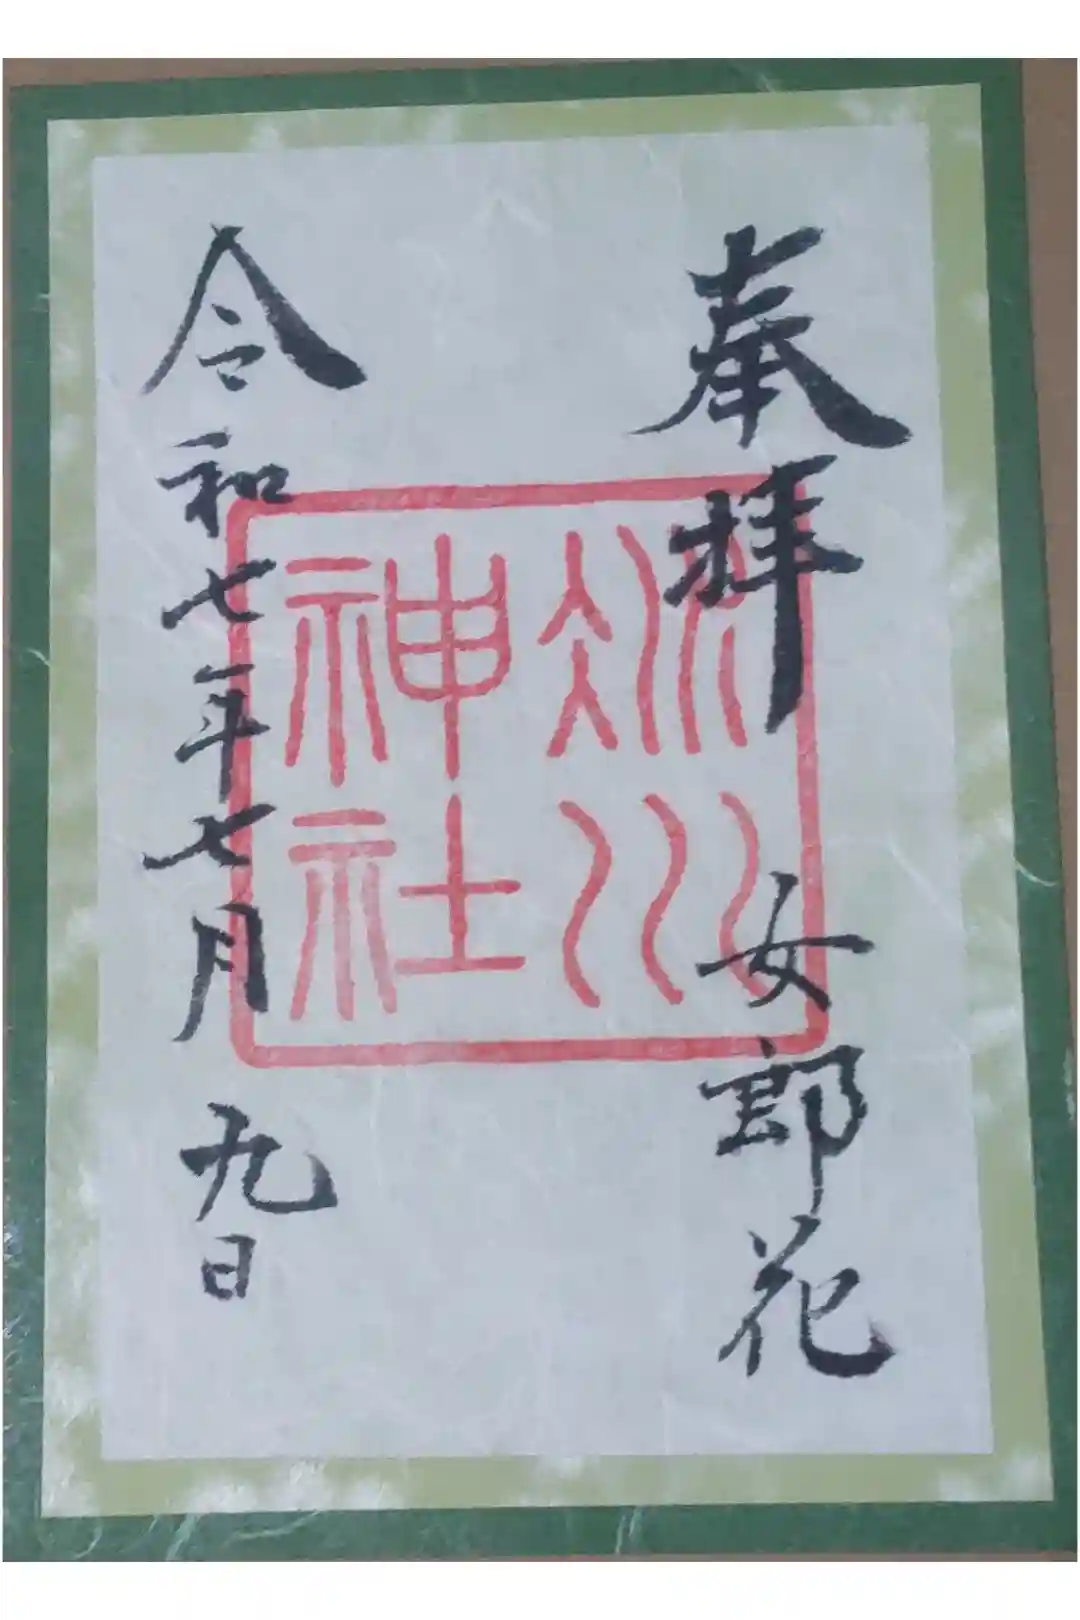 奉拝　女郎花
冰川
神社
令和七年七月九日